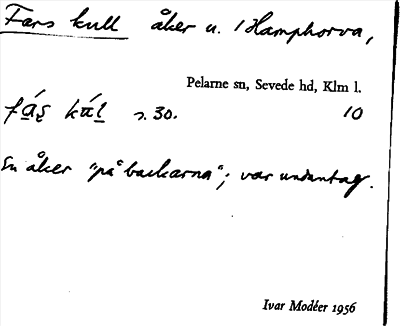 Fars kull åker u. Hamphorva,
Pelarne sn, Sevede hd, Klm l.
fás̨ kál s. 30. 10
En åker "på backarna"; var undantag.
Ivar Modéer 1956